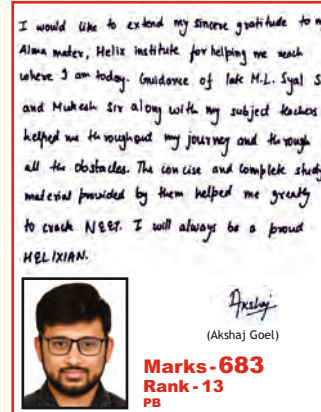 I would like to extend my sincere gratitude to
Alma mater, Helix institute for helping me reach
where I am today. Guidance of late M.L. Syal
and Mukesh Sir along with my subject teachers
helped me throughout my journey and through
all the obstacles. The concise and complete study
material provided by them helped me greatly
to crack NEET. I will always be a proud
HELIXIAN.
Akshaj
(Akshaj Goel)
Marks-683
Rank-13
PB